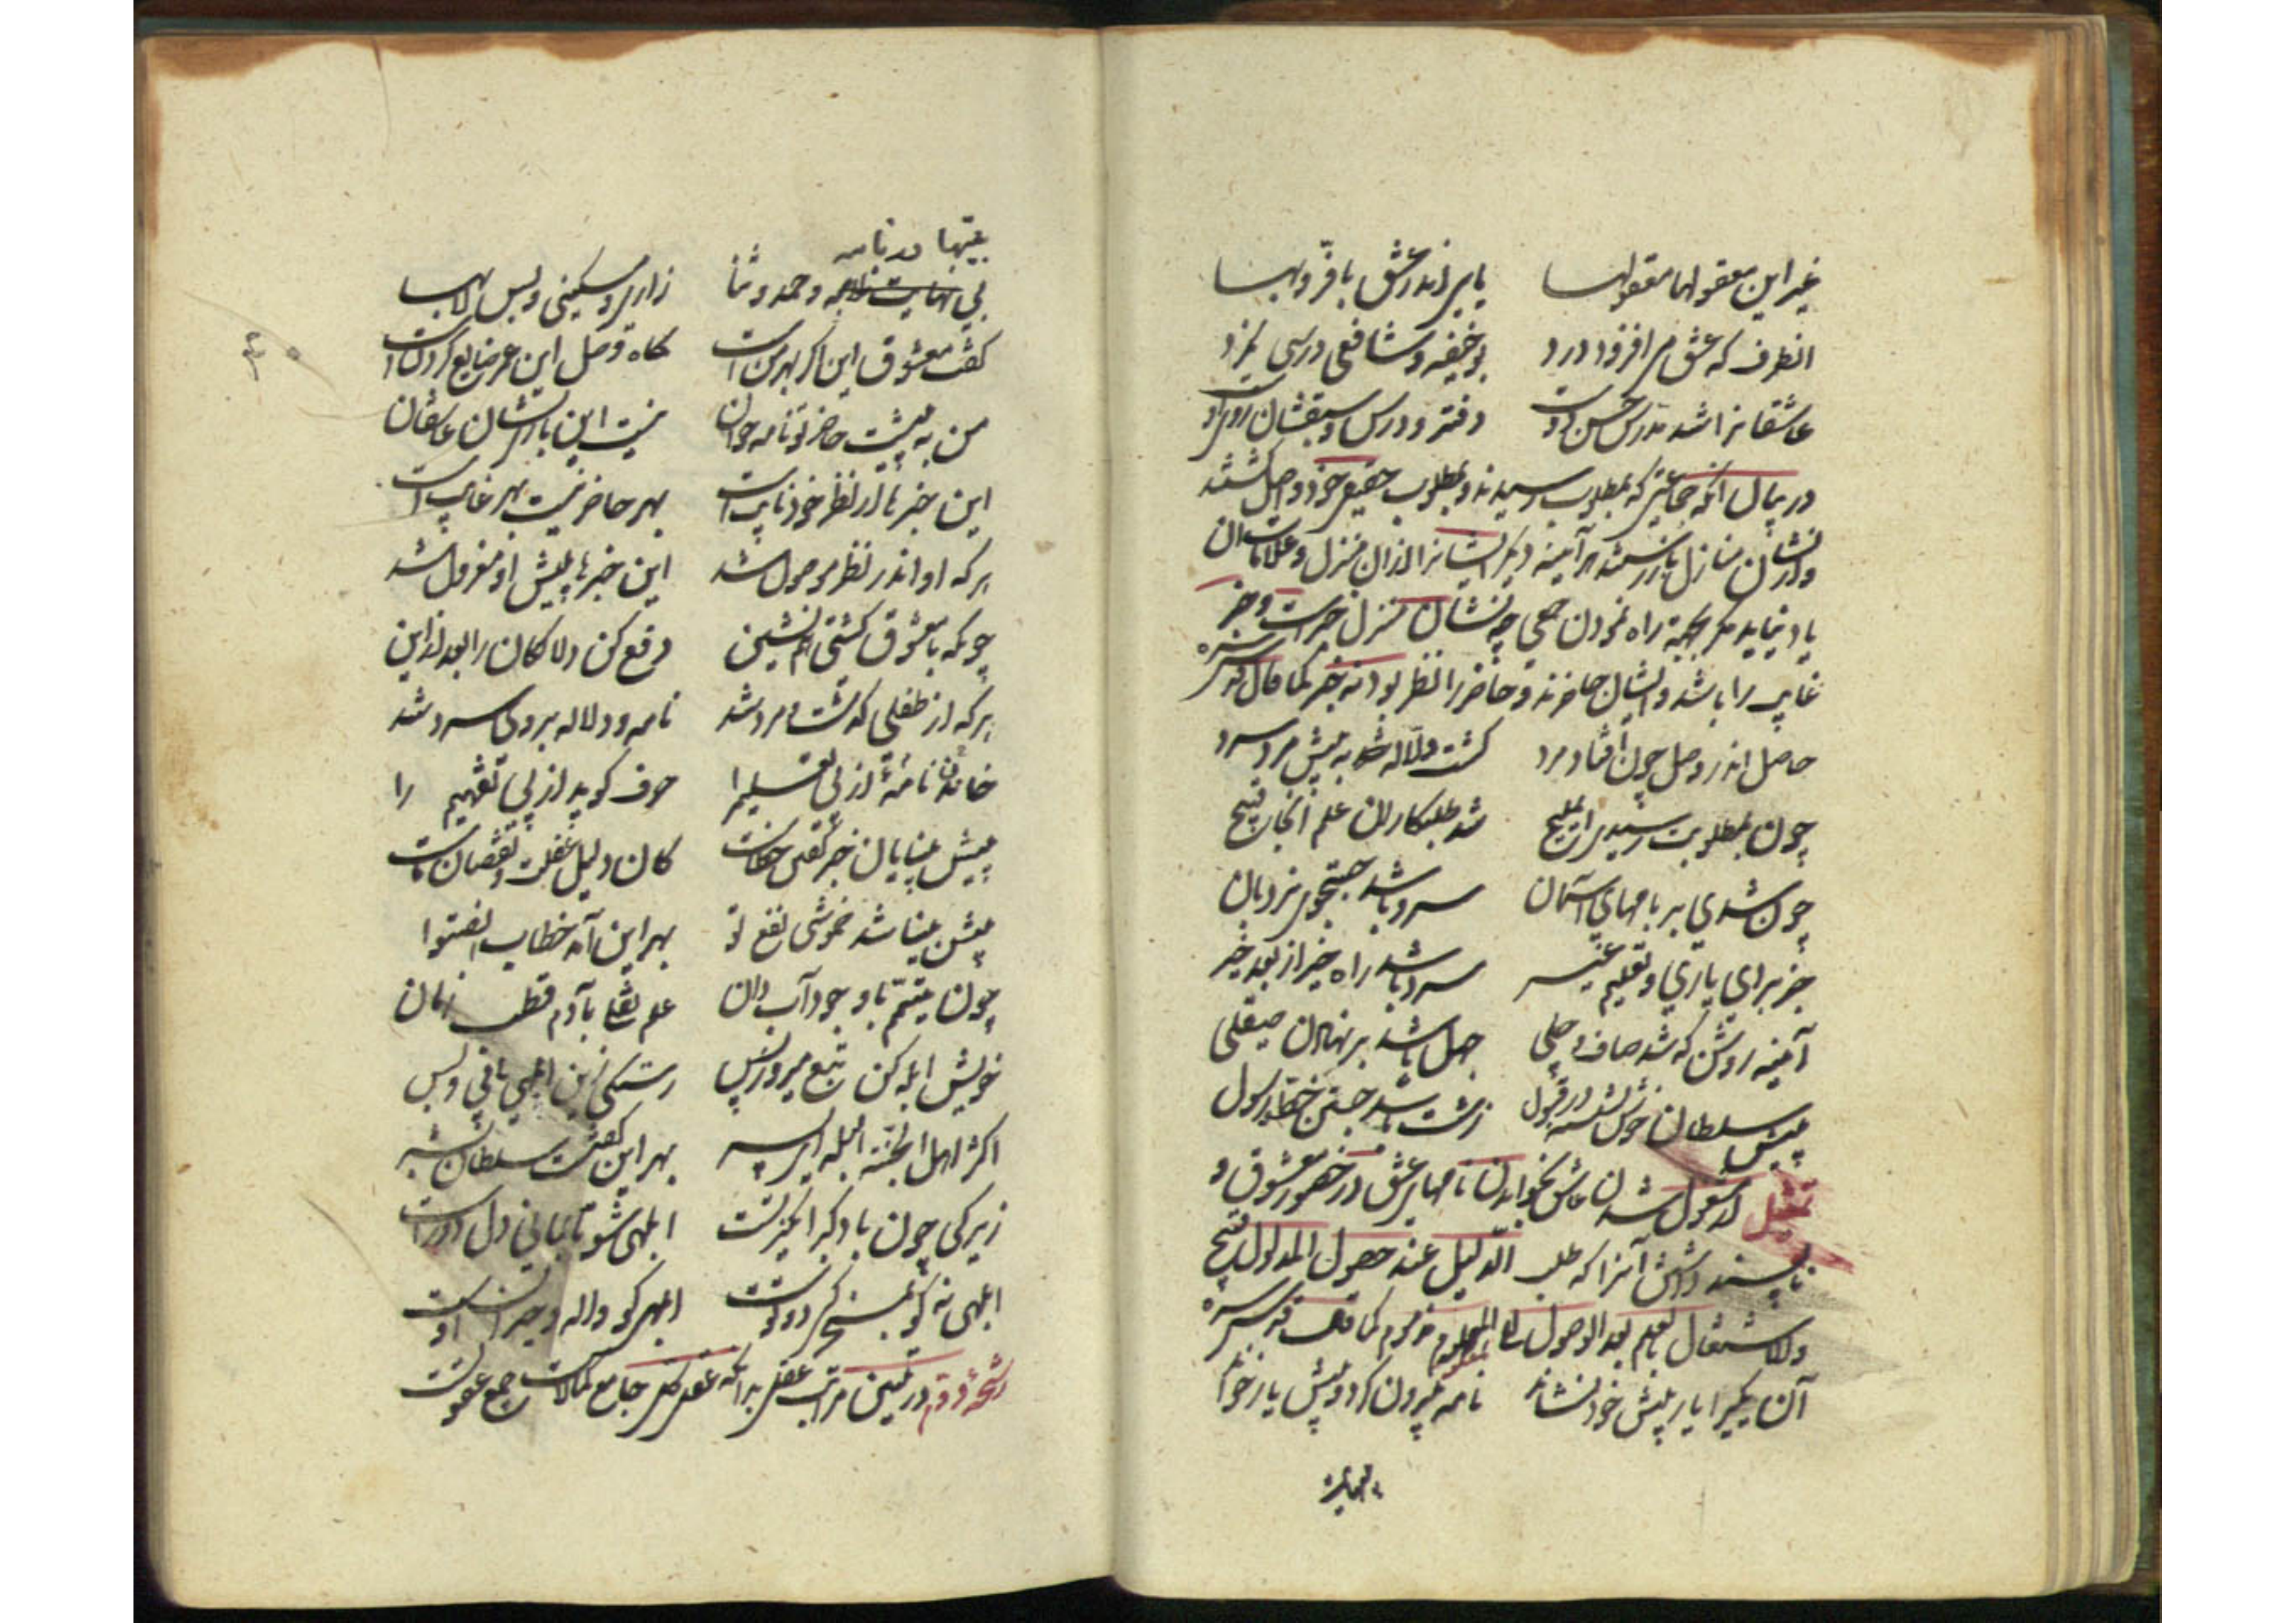 غیر این معقولها معقولها    یابی اندر عشق با فر و بها
انطرف که عشق می افزود درد    بوحنیفه و شافعی درسی نکرد
عاشقانرا شد مدرس حسن دوست    دفتر و درس و سبقشان روی اوست
در بیان آنکه جماعتی که بمطلوب رسیدند و بمطلوب حقیقی خود واصل گشتند
منازل باز رستند هر آینه دیگر ایشانرا ازان منزل و علامات ان
یاد نیاید مگر بجهة راه نمودن جمعی چه نشان منزل و خبر
غایب را باشد و ایشان حاضرند و حاضر را نظر بود نه خبر کما قال قدس سره
حاصل اندر وصل چون افتاد مرد    گشت دلاله به پیش مرد سرد
چون بمطلوبت رسیدی ای ملیح    شد طلبکاری علم اکنون قبیح
چون شدی بر بامهای آسمان    سرد باشد جستجوی نردبان
جز برای یاری و تعلیم غیر    سرد باشد راه خیر از بعد خیر
آینه روشن که شد صاف و جلی    جهل باشد بر نهادن صیقلی
پیش سلطان خوش نشسته در قبول    زشت باشد جستن خط و رسول
تمثیل مشغول شدن عاشق بخواندن نامهای عشق در حضور معشوق و
ناپسند داشتن آنرا که طلب الدلیل عند حصول المدلول قبیح
والاشتغال بالعلم بعد الوصول الی المعلوم مذموم کما قال قدس سره
آن یکیرا یار پیش خود نشاند    نامه بیرون کرد و پیش یار خواند
بیتها در نامه
بیتها در نامه و حمد و ثنا    زاری و مسکینی و بس لابها
گفت معشوق این اگر بهر من است    گاه وصل این عمر ضایع کردن است
من به پیشت حاضر تو نامه خوان    نیست این باری نشان عاشقان
این خبرها از نظر خود نایب است    بهر حاضر نیست بهر غایب است
هر که او اندر نظر موصول شد    این خبرها پیش او معزول شد
چونکه با معشوق گشتی همنشین    دفع کن دلالگان را بعد ازین
هر که از طفلی گذشت و مرد شد    نامه و دلاله بر وی سرد شد
نامه از پی تعلیم را    حرف گوید از پی تفهیم را
پیش بینایان خبر گفتن خطاست    کان دلیل غفلت و نقصان ماست
پیش بینا شد خموشی نفع تو    بهر این آمد خطاب انصتوا
چون تیمم با وجود آب دان    علم نقلی با دم قطب زمان
خویش ابله کن تبع میرو ز پس    رستگی زین ابلهی یابی و بس
اکثر اهل الجنه البله ای پسر    بهر این گفتست سلطان بشر
زیرکی چون باد کبر انگیز تست    ابلهی شو تا بماند دل درست
ابلهی نه کو بمسخرگی دوتوست    ابلهی کو واله و حیران اوست
رشحه دوم در تبیین مراتب عقل بدانکه عقل کل جامع کمالات جمیع عقولست